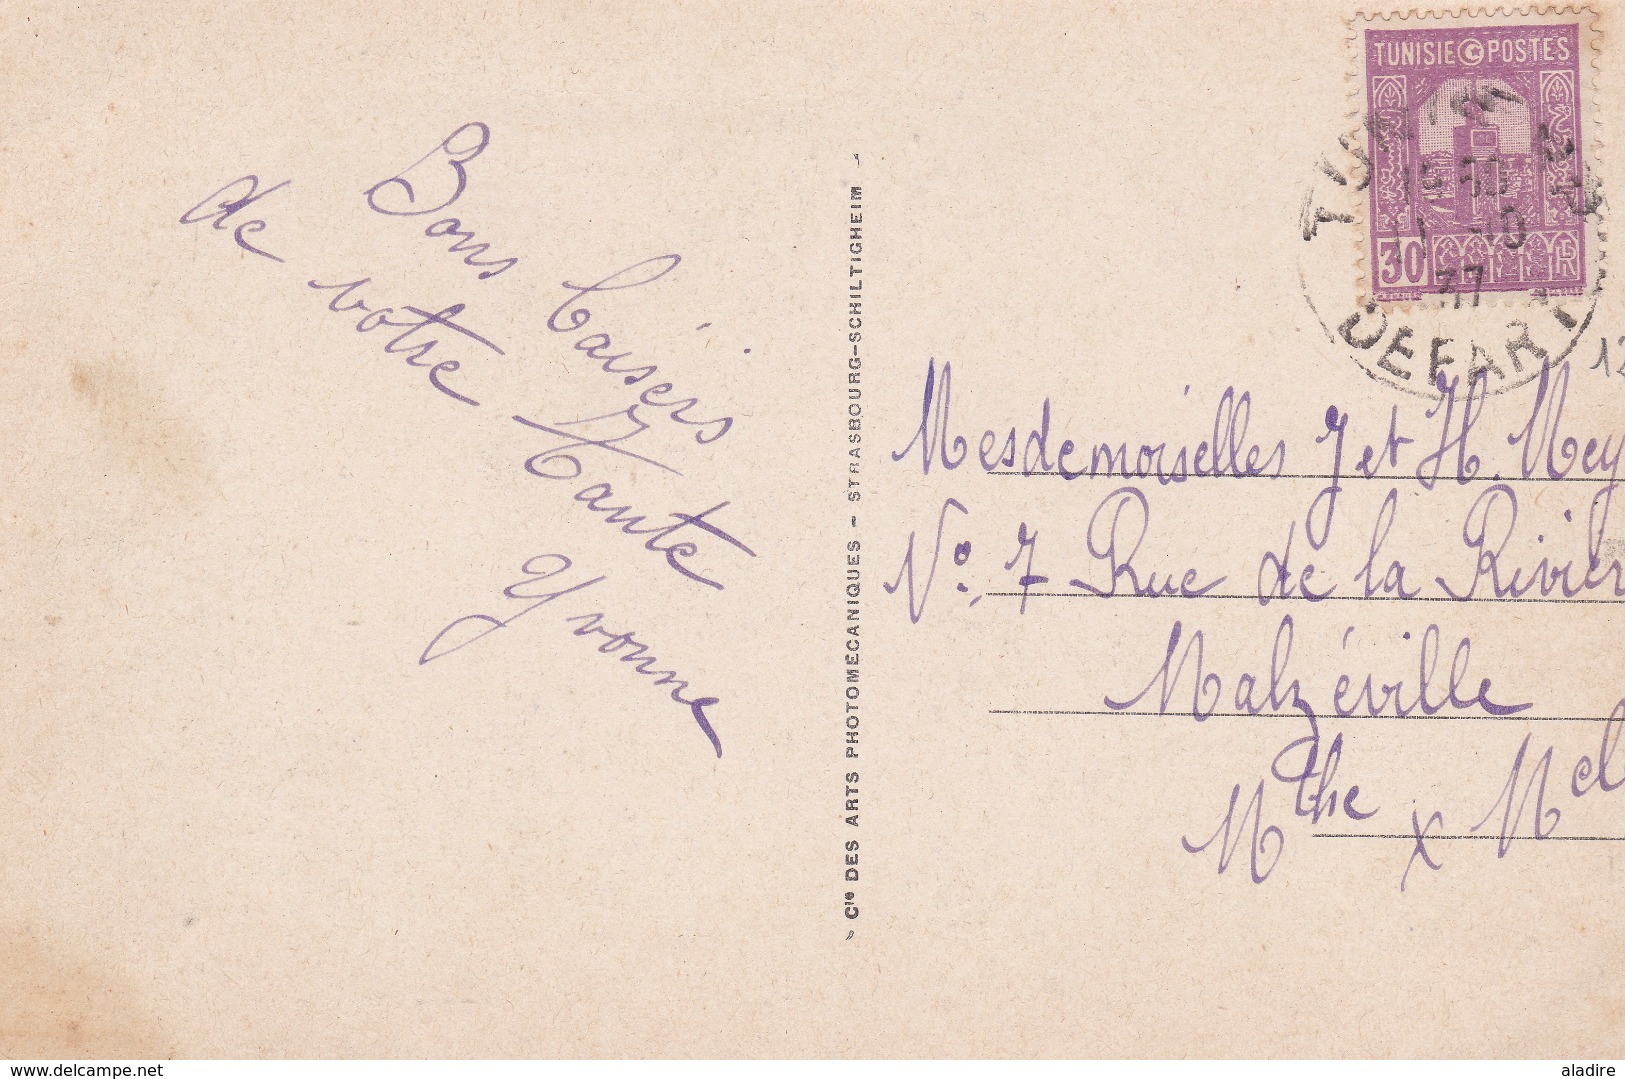 Bons baisers
de votre Tante
Yvonne
Cie DES ARTS PHOTOMECANIQUES - STRASBOURG-SCHILTIGHEIM
TUNISIE POSTES
30
RF
11 -10
37
DEPART
12
Mesdemoiselles J et H. Mey
No. 7 Rue de la Rivièr
Malzéville
Mthe x Mel
www.delcampe.net
aladire